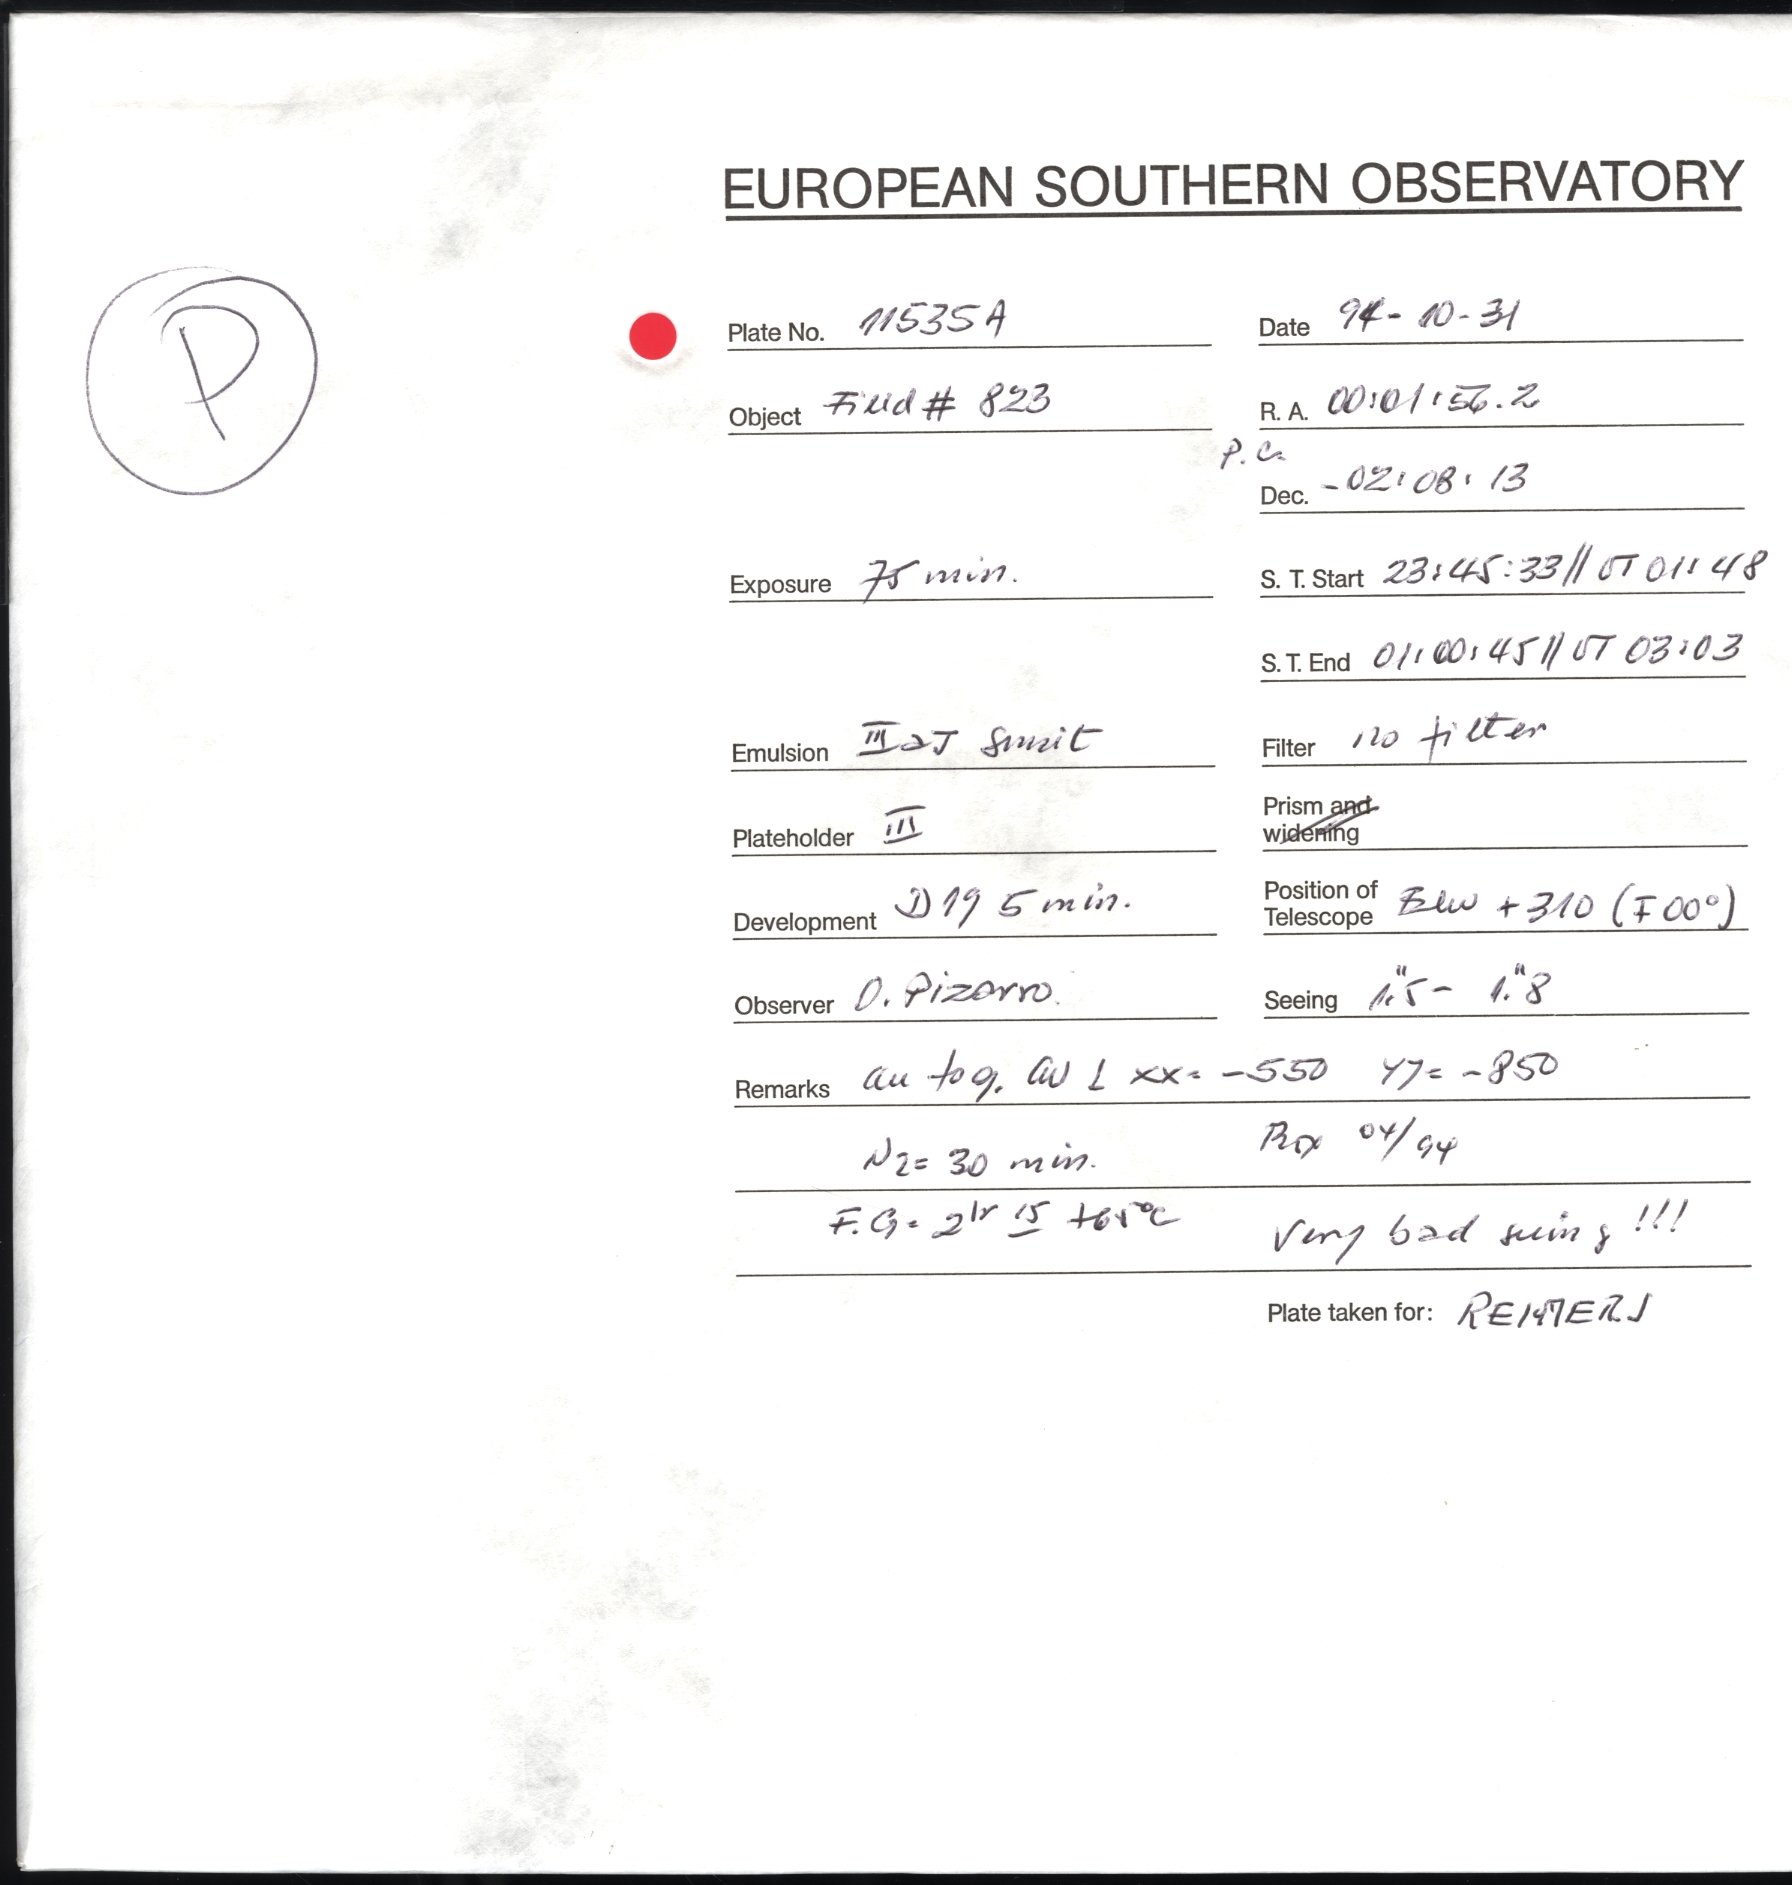 EUROPEAN SOUTHERN OBSERVATORY
P
Plate No. 11535A Date 94-10-31
Object Field # 823 R. A. 00:01:56.2
P. C.
Dec. -02:08:13
Exposure 75 min. S. T. Start 23:45:33 // UT 01:48
S. T. End 01:00:45 // UT 03:03
Emulsion IIIaJ Filter no filter
Plateholder III Prism and
widening
Development D19 5 min. Position of
Telescope +310 (F00°)
Observer O. Pizarro. Seeing 1."5 - 1."8
Remarks autog. xx= -550 yy= -850
N2= 30 min. 04/94
F.G= 2hr 15 +65°C Very bad seeing !!!
Plate taken for: REIMERS